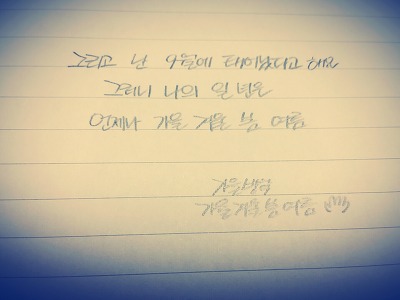 그리고 난 9월에 태어났다고 해요
그러니 나의 일 년은
언제나 가을 겨울 봄 여름
가을방학
가을 겨울 봄 여름